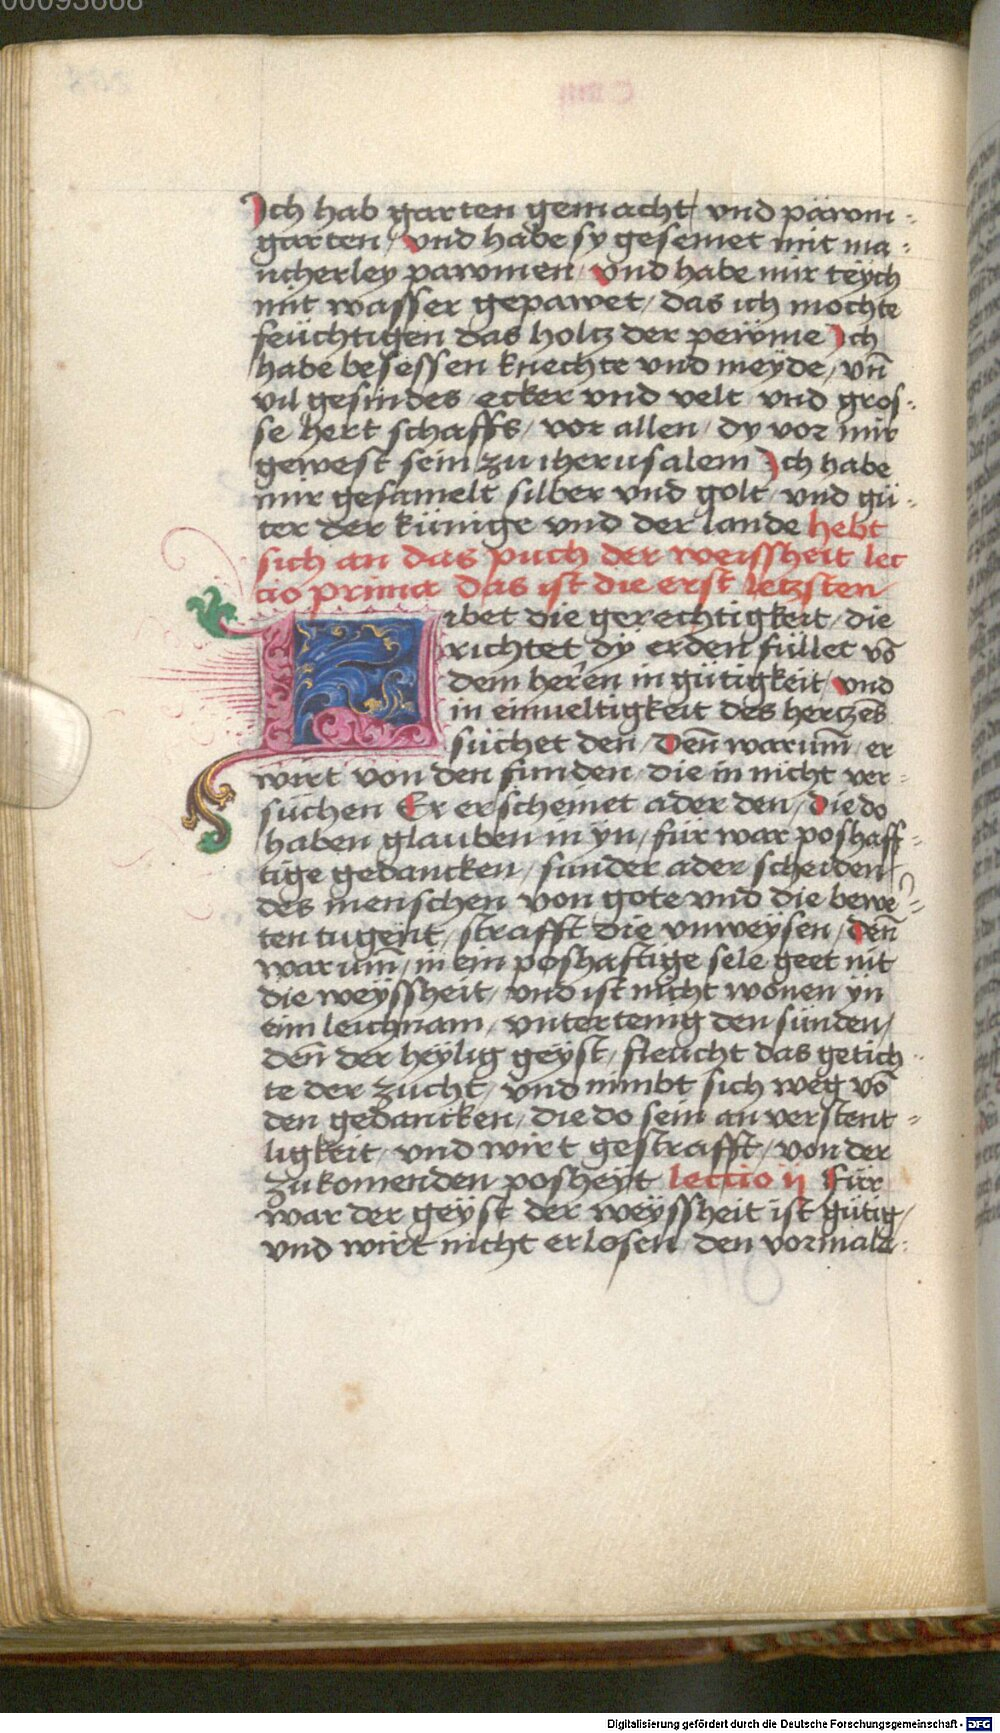 00093668
Ich hab garten gemacht vnd päwm-
garten / vnd habe sy gesemet mit ma-
ncherley pawmen / vnd habe mir teÿch
mit wasser gepawet / das ich mochte
feüchtigen das holtz der pewme Ich
habe besessen knechte vnd meÿde / vn̄
vil gesindes / ecker vnd velt / vnd gros-
se hert schaffs / vor allen / dy vor mir
gewest sein zu iherusalem Ich habe
mir gesamelt silber vnd golt / vnd gü-
ter der künige vnd der lande hebt
sich an das puch der weissheit lec
cio prima das ist die erst letzsten
Libet die gerechtigkeit / die
richtet dÿ erden füllet vō
dem herren in gütigkeit / vnd
in einueltigkeit des hertzēs
süchet den / Den̄ warum̄ / er
wirt von den funden / die in nicht ver-
süchen Er erscheinet ader den / die do
haben glauben in ÿn / für war poshaff-
tige gedancken / sunder ader scheiden
des menschen von gote vnd die bewe-
ten tugent / strafft die vnweÿsen / den̄
warum̄ / in ein poshaftige sele geet nit
die weÿssheit / vnd ist nicht wonen ÿn
eim leichnam / vntertenig den sünden /
den̄ der heÿlig geÿst / fleucht das getich-
te der zucht / vnd nimbt sich weg vō
den gedancken / die do sein an verstent-
ligkeit / vnd wirt gestrafft / von der
zukomenden posheÿt lectio ij Für
war der geÿst der weÿssheit ist gütig /
vnd wirt nicht erlosen / den vormale-
Digitalisierung gefördert durch die Deutsche Forschungsgemeinschaft - DFG